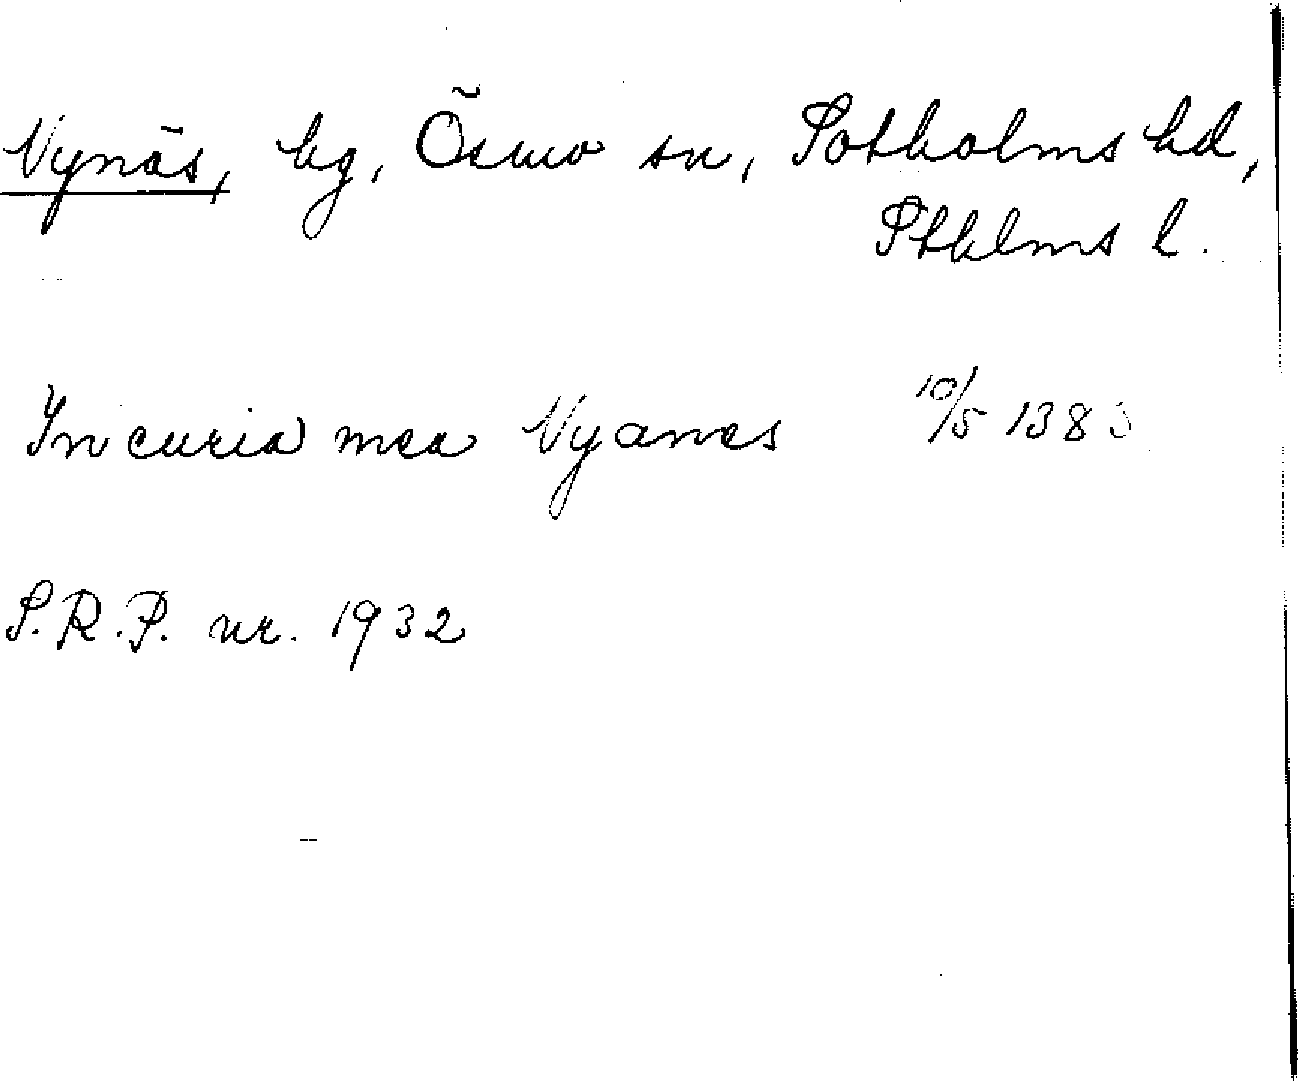 Vynäs, hg, Ösmo sn, Sotholms hd,
Sthlms l.
In curia mea Vyanes 10/5 1383
S.R.P. nr. 1932